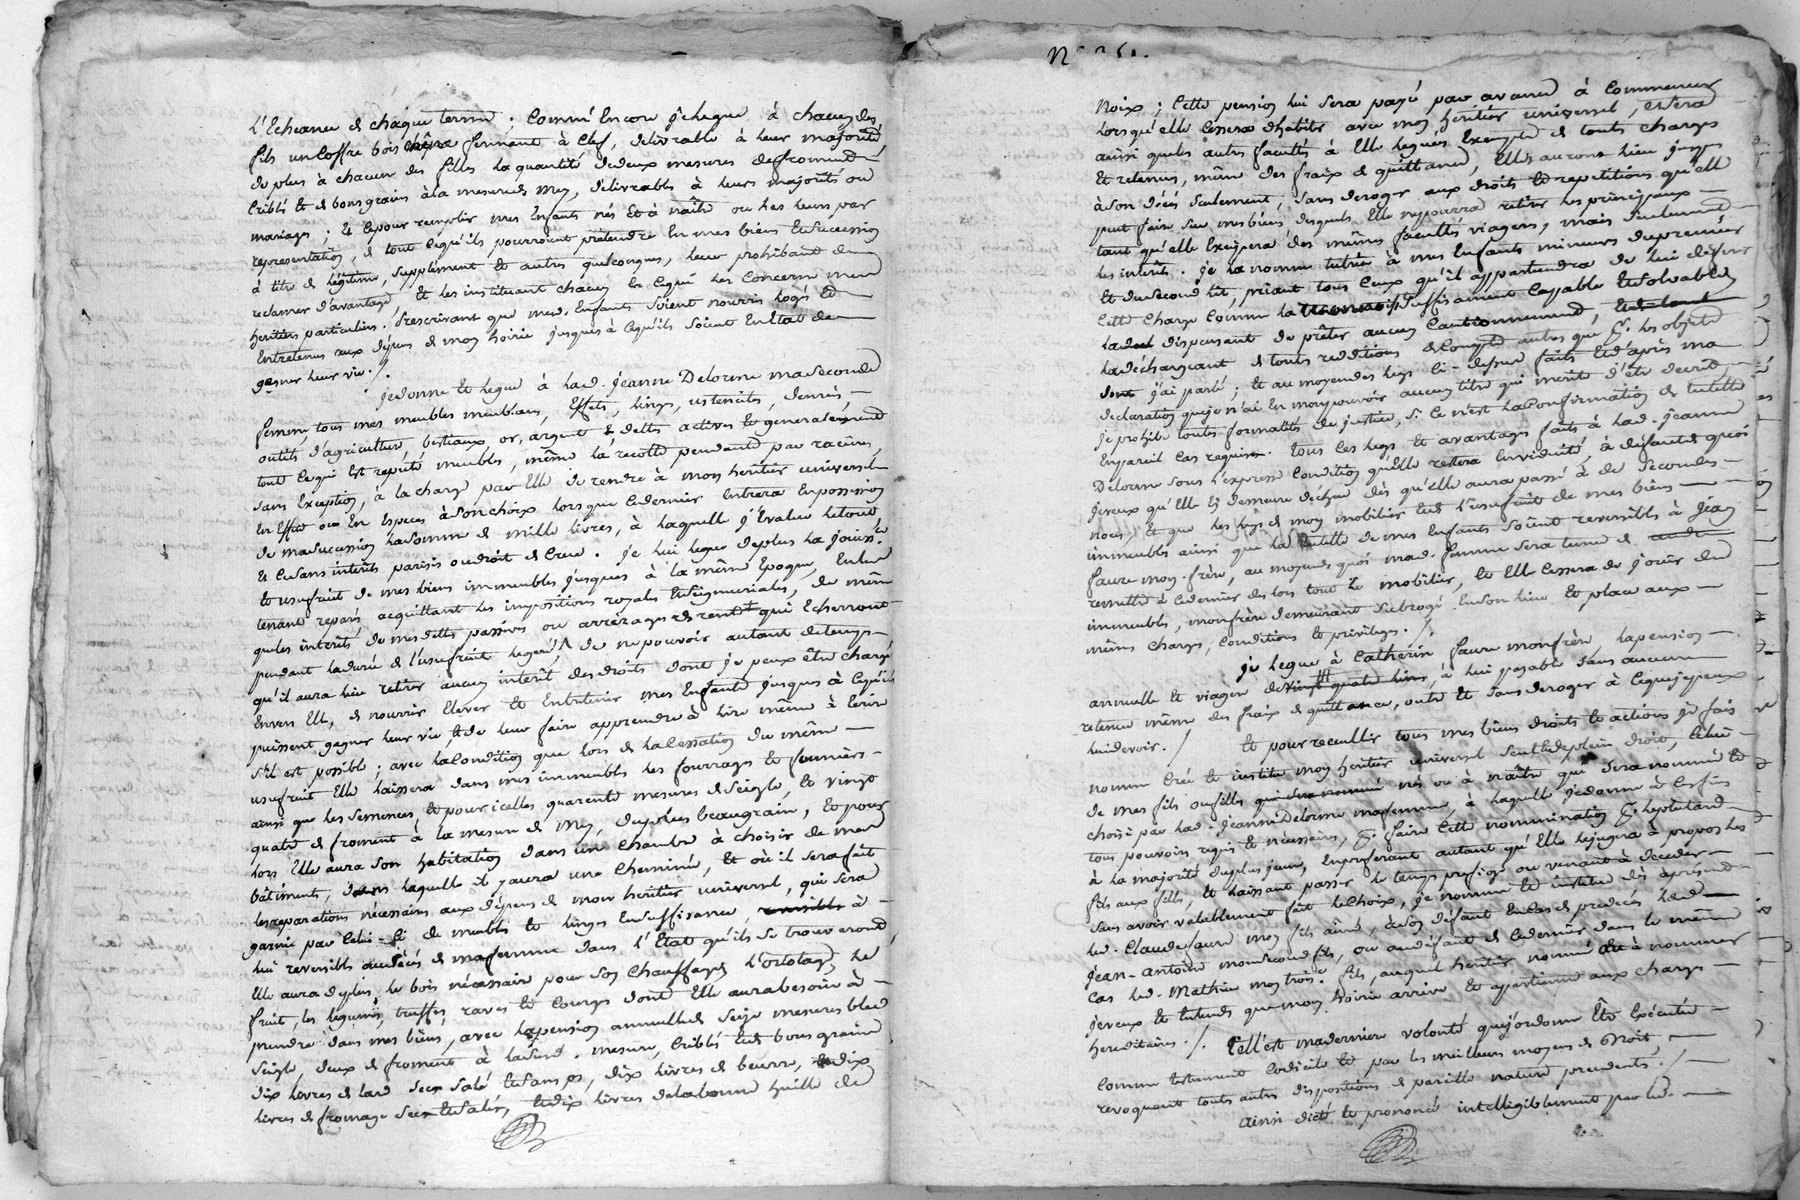 l'Echeance de chaque terme ; Comme Encore je legue à chacun des
fils un Coffre bois chêne fermant à Clef, delivrable à leur majorité
de plus à chacune des filles la quantité de deux mesures de froment
criblé et de bons grains à la mesure de Mey, délivrables à leurs majorités ou
mariages ; Et Ce pour remplir mes Enfants nés Et à naître ou les leurs par
representation, de tout Ce qu'ils pourroient prétendre En mes biens et succession
à titre de légitime, supplément et autres quelconques, leur prohibant de
reclamer d'avantage Et les instituant chacun En Ce qui les Concerne mes
heritiers particuliers. Prescrivant que mesd. Enfants Soient nourris logés Et
Entretenus aux dépens de mon hoirie jusques à Ce qu'ils soient En état de
gagner leur vie. /.
je donne Et legue à lad. jeanne Delorme ma seconde
femme, tous mes meubles meublans, Effets, linges, ustenciles, denrées,
outils d'agriculture, bestiaux, or, argent & dettes actives Et generalement
tout Ce qui Est reputé meubles, même la récolte pendante par racines,
sans Exception, à la charge par Elle de rendre à mon heritier universel
En Effets ou En Especes à son choix lorsque Ce dernier Entrera En possession
de ma succession la somme de mille livres, à laquelle j'Evalue le tout
Et Ce sans intérêts parisis ou droit de Crue. je lui legue de plus la jouiss.ce
Et usufruit de mes biens immeubles jusques à la même Epoque, En les
tenant réparés acquittant les impositions royales Et seigneuriales, de même
que les intérêts de mes dettes passives ou arrérages de rentes qui Echerront
pendant la durée de l'usufruit legué, de ne pouvoir autant de temps
qu'il aura lieu retirer aucun intérêt des droits dont je peux être chargé
Envers Elle, de nourrir Elever Et Entretenir mes Enfants jusques à Ce qu'ils
puissent gagner leur vie Et de leur faire apprendre à lire même à Ecrire
s'il est possible ; avec la Condition que lors de la Cessation du même
usufruit Elle laissera dans mes immeubles les fourrages Et fumiers
ainsi que les semences, Et pour icelles quarente mesures de seigle, Et vingt
quatre de froment à la mesure de Mey, du plus beau grain, Et pour
lors Elle aura son habitation dans une Chambre à choisir de mes
bâtiments, dans laquelle il y aura une Cheminée, Et où il sera fait
les reparations nécessaires aux dépens de mon heritier universel, qui sera
garnie par Celui-Ci de meubles Et linges En suffisance, à
lui reversibles au décés de ma femme dans l'Etat qu'ils se trouveront
Elle aura de plus, le bois nécessaire pour son Chauffage, l'ortolage, le
fruit, les legumes, truffes, raves Et Courges dont Elle aura besoin à
prendre dans mes biens, avec la pension annuelle de seize mesures bled
seigle, deux de froment à lad. mesure, Criblés Et de bons grains
dix livres de lard sec salé Et sans os, dix livres de beurre, dix
livres de fromage sec Et salé, Et dix livres de la bonne huille de
N.o
Noix ; Cette pension lui sera payée par avance à Commencer
lorsqu'elle Cessera d'habiter avec mon heritier universel, Et sera
ainsi que les autres facultés à Elle leguées Exempte de toutes charges
Et retenues, même des fraix de quittance, Elles auront lieu jusques
à son décés seulement, sans deroger aux droits Et repetitions qu'elle
peut faire sur mes biens desquels Elle ne pourra retirer les principaux
tant qu'elle Excipera des mêmes facultés viageres, mais seulement
les intérêts. je la nomme tutrice à mes Enfants mineurs du premier
Et du second lit, priant tous Ceux qu'il appartiendra de lui déferer
Cette Charge Comme la suffisament Cappable Et solvable
la dispensant de prêter aucun Cautionnement,
la déchargeant de toutes redditions de Compte autres que p.r les objets
dont j'ai parlé ; Et au moyen des legs Ci-dessus faits Et d'après ma
declaration que je n'ai En mon pouvoir aucun titre qui merite d'être décrit,
je prohibe toutes formalités de justice, si Ce n'est la Confirmation de tutelle
En pareil Cas requise. Tous Ces legs Et avantages faits à lad. jeanne
Delorme sous l'expresse Condition qu'Elle restera En viduité, à défaut de quoi
je veux qu'Elle En demeure déchue dès qu'elle aura passé à de secondes
noces, Et que les legs de mon mobilier Et de l'usufruit de mes biens
immeubles ainsi que la tutelle de mes Enfants soient reversibles à jean
faure mon frère, au moyen de quoi mad. femme sera tenue de
remettre à Ce dernier dès lors tout le mobilier, Et Elle Cessera de jouir des
immeubles, mon frère demeurant subrogé En son lieu Et place aux
mêmes charges, Conditions Et privileges. /.
je legue à Catherin faure mon frère la pension
annuelle Et viagere de vingt quatre livres, à lui payable sans aucune
retenue même des fraix de quittance, outre Et sans deroger à Ce que je peux
lui devoir. / Et pour recueillir tous mes biens droits Et actions je fais
nomme Crée Et institue mon heritier universel seul Et de plein droit, Celui
de mes fils ou filles nés ou à naître qui sera nommé Et
choisi par lad. jeanne Delorme ma femme, à laquelle je donne à Ces fins
tous pouvoirs requis Et nécessaires, p.r faire Cette nomination
à la majorité du plus jeune, En preferant autant qu'Elle le jugera à propos les
fils aux filles, Et laissant passer le temps prefixé ou venant à deceder
sans avoir valablement fait le choix, je nomme Et institue dès àprésent
led. Claude faure mon fils ainé, à son défaut En Cas de predecés led.
jean-antoine mon second fils, ou au défaut de Ce dernier dans le même
Cas led. Mathieu mon trois.e fils, auquel heritier nommé ou à nommer
je veux Et Entends que mon hoirie arrive Et appartienne aux charges
hereditaires. /. Tell'est ma derniere volonté que j'ordonne Etre Exécutée
Comme testament Codicile Et par les meilleurs moyens de droit,
revoquant toutes autres dispositions de pareille nature precedentes. /
ainsi dicté Et prononcé intelligiblement par led.